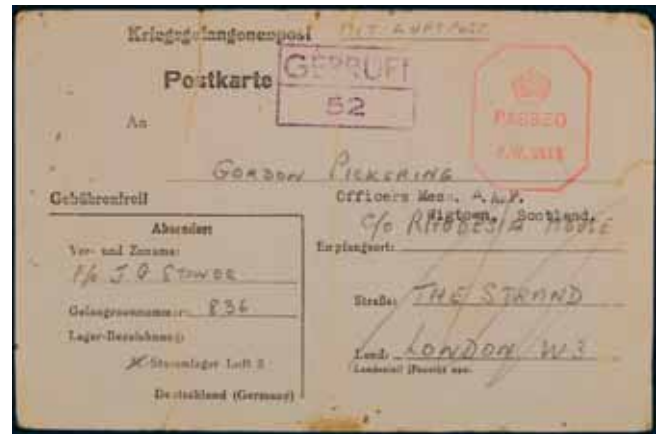 Kriegsgefangenenpost MIT LUFTPOST
Postkarte
GEPRÜFT
52
PASSED
P.W.
An
GORDON PICKERING
Officers Mess. R.A.F.
Wigtown, Scotland.
c/o RHODESIA HOUSE
Gebührenfrei!
Absender:
Vor- und Zuname:
J. G. STOWER
Gefangenennummer: 836
Lager-Bezeichnung:
Stammlager Luft 3
Deutschland (Germany)
Empfangsort:
Straße: THE STRAND
Land: LONDON W3